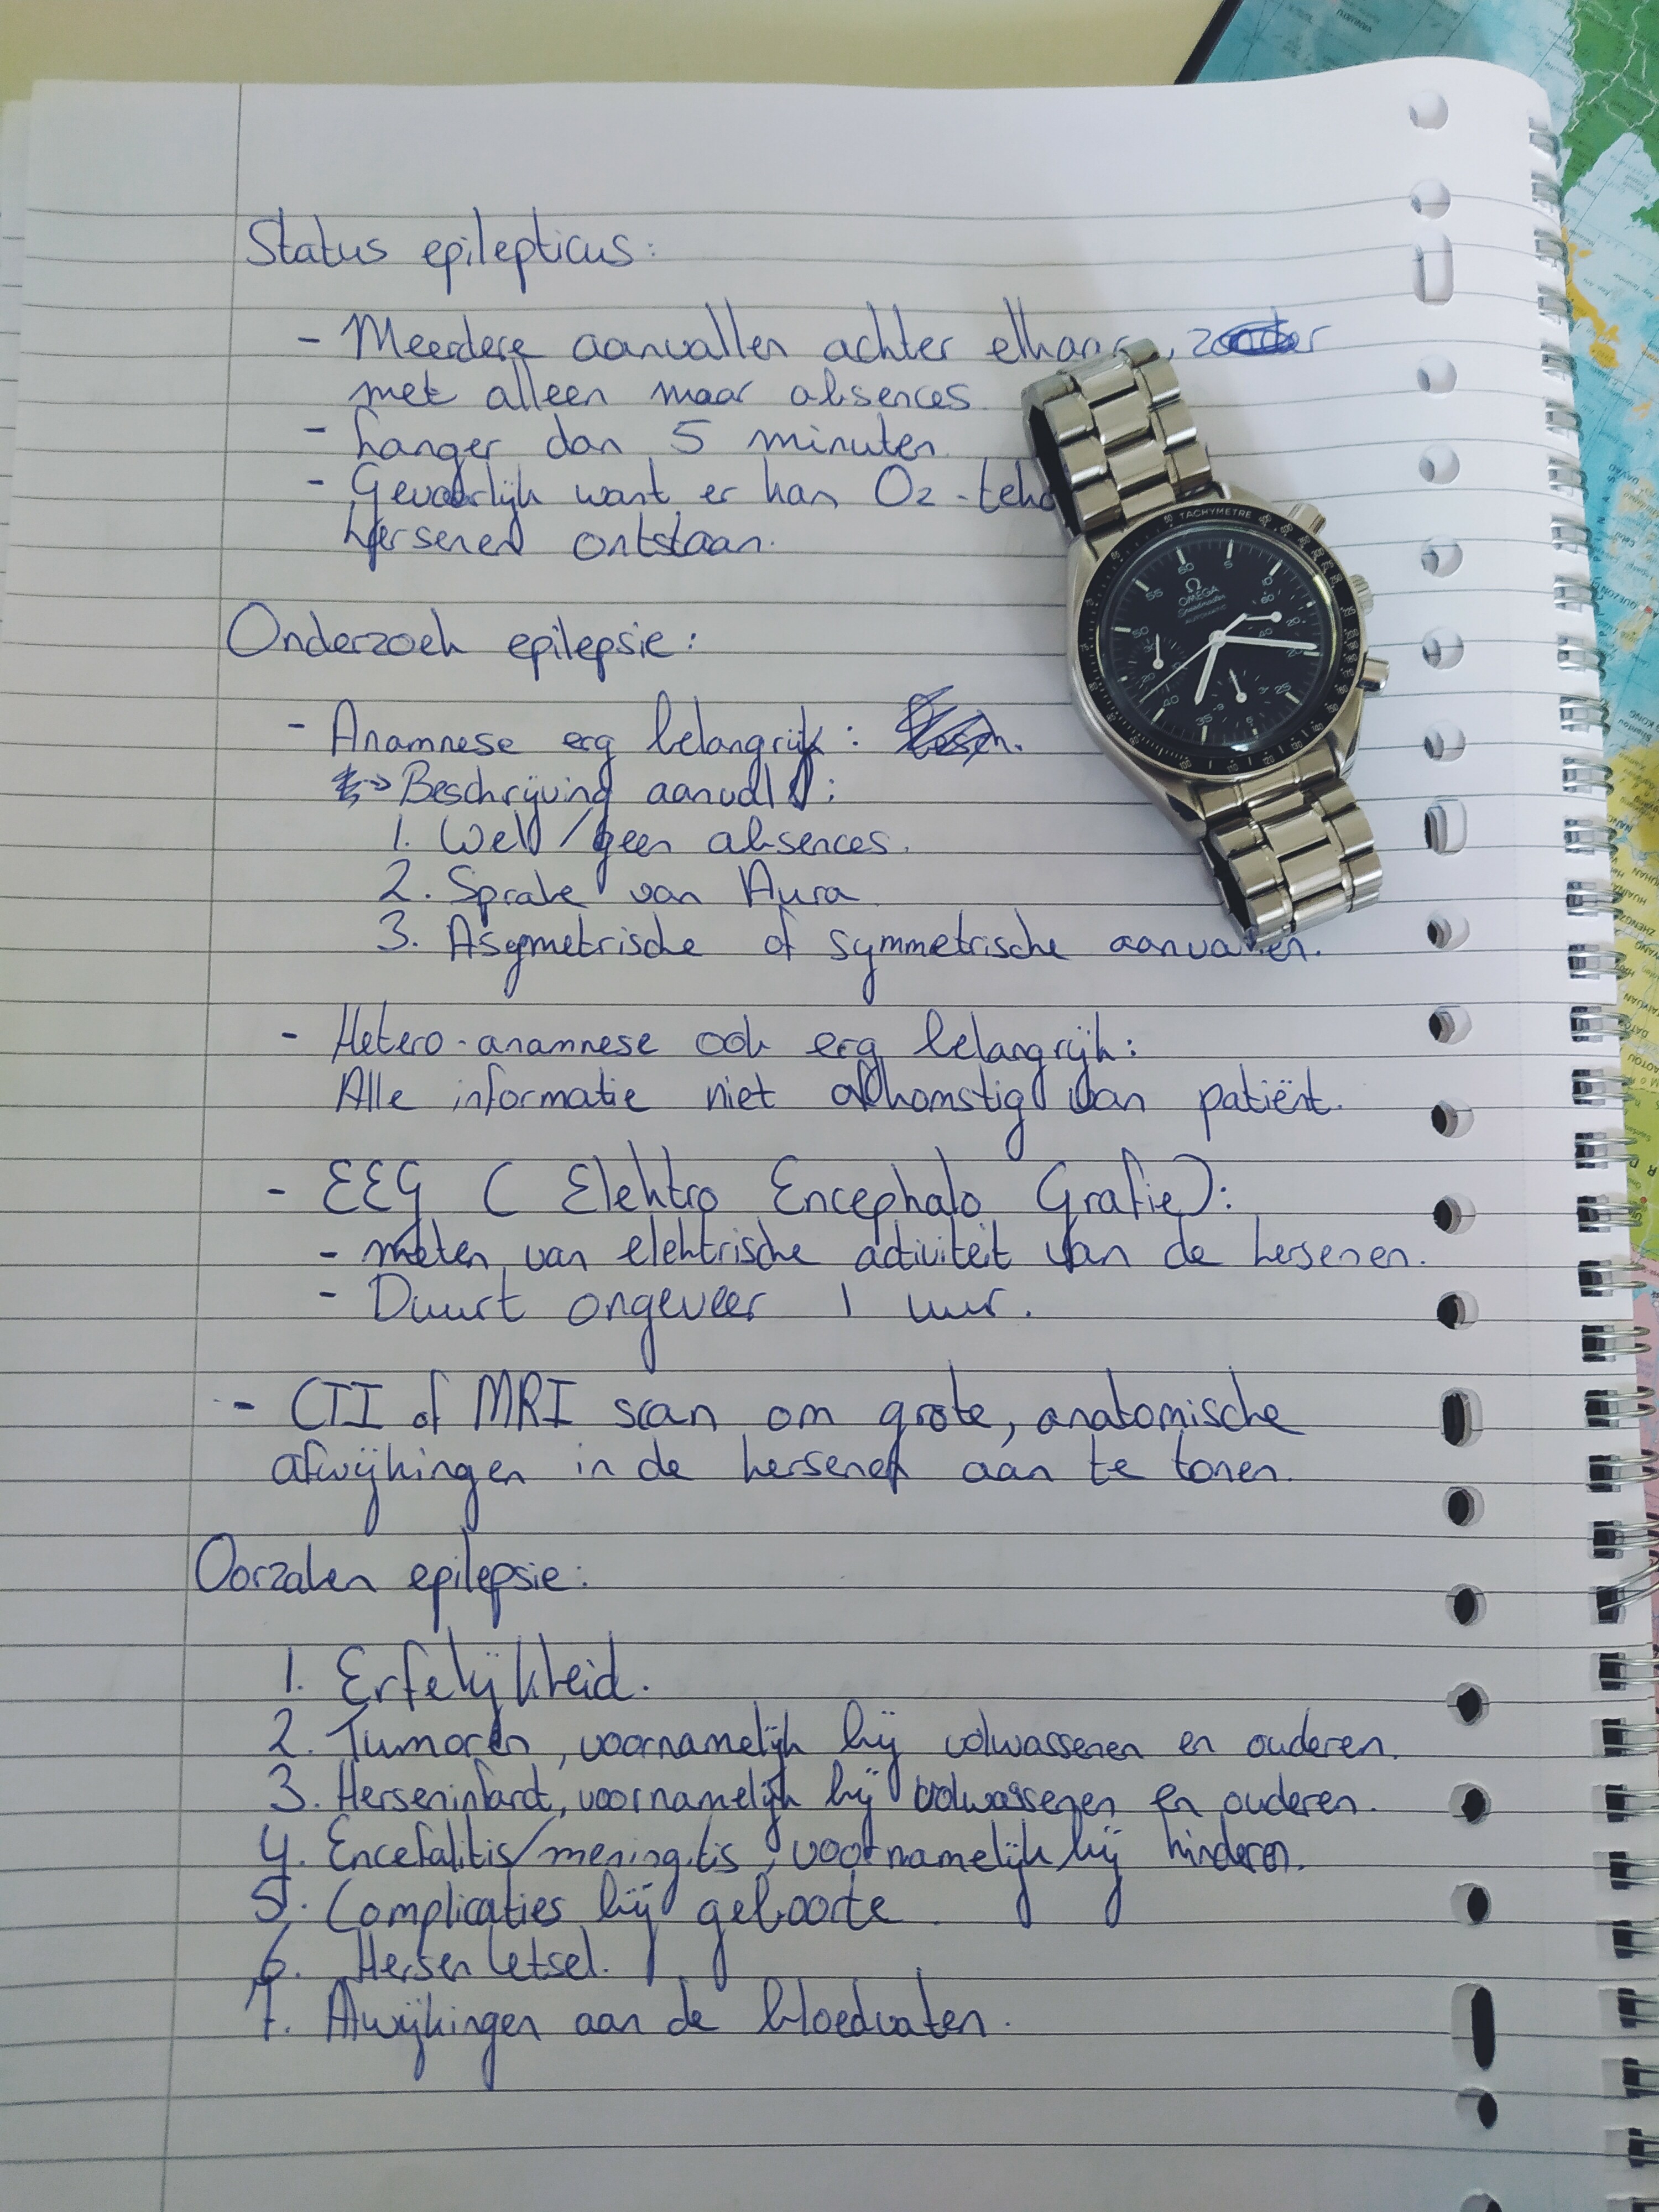 Status epilepticus:
- Meerdere aanvallen achter elkaar, zonder
met alleen maar absences.
- Langer dan 5 minuten.
- Gevaarlijk want er kan O2-teko
hersenen ontstaan.
Onderzoek epilepsie:
- Anamnese erg belangrijk:
-> Beschrijving aanval:
1. Wel/geen absences.
2. Sprake van Aura
3. Asymetrische of symmetrische aanvallen.
- Hetero-anamnese ook erg belangrijk:
Alle informatie niet afkomstig van patiënt.
- EEG (Elektro Encephalo Grafie):
- meten van elektrische activiteit van de hersenen.
- Duurt ongeveer 1 uur.
- CTI of MRI scan om grote, anatomische
afwijkingen in de hersenen aan te tonen.
Oorzaken epilepsie:
1. Erfelijkheid.
2. Tumoren, voornamelijk bij volwassenen en ouderen.
3. Herseninfarct, voornamelijk bij volwassenen en ouderen.
4. Encefalitis/meningitis, voornamelijk bij kinderen.
5. Complicaties bij geboorte.
6. Hersenletsel.
7. Afwijkingen aan de bloedvaten.
TACHYMETRE
OMEGA
Speedmaster
AUTOMATIC